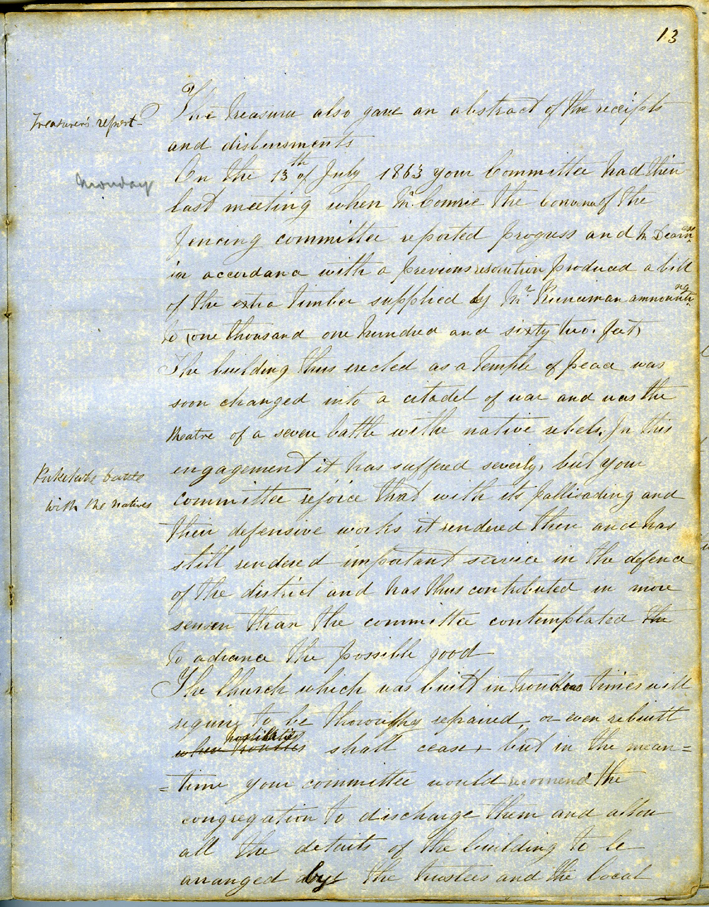 13
Treasurer's report
The Treasurer also gave an abstract of the receipts
and disbursments
Monday
On the 13th of July 1863 your Committee had their
last meeting when Mr Comrie the convener of the
fencing committee reported progress and Mr
in accordance with a previous resolution produced a bill
of the extra timber supplied by Mr Runciman ammounting
to (one thousand one hundred and sixty two. feet)
The building thus erected as a temple of peace was
soon changed into a citadel of war and was the
theatre of a severe battle withe native rebels. In this
engagement it has suffered severly. but your
Pukekohe battle
with the natives
committee rejoice that with its pallisading and
their defensive works it rendered then and has
still rendered important service in the defence
of the district and has thus contributed in more
senses than the committee contemplated the
to advance the possible good
The Church which was built in troublous times will
require to be thoroughly repaired or even rebuilt
when troubles hostilities shall cease but in the mean=
=time your committee would recomend the
congregation to discharge them and allow
all the details of the building to be
arranged by the trustees and the local